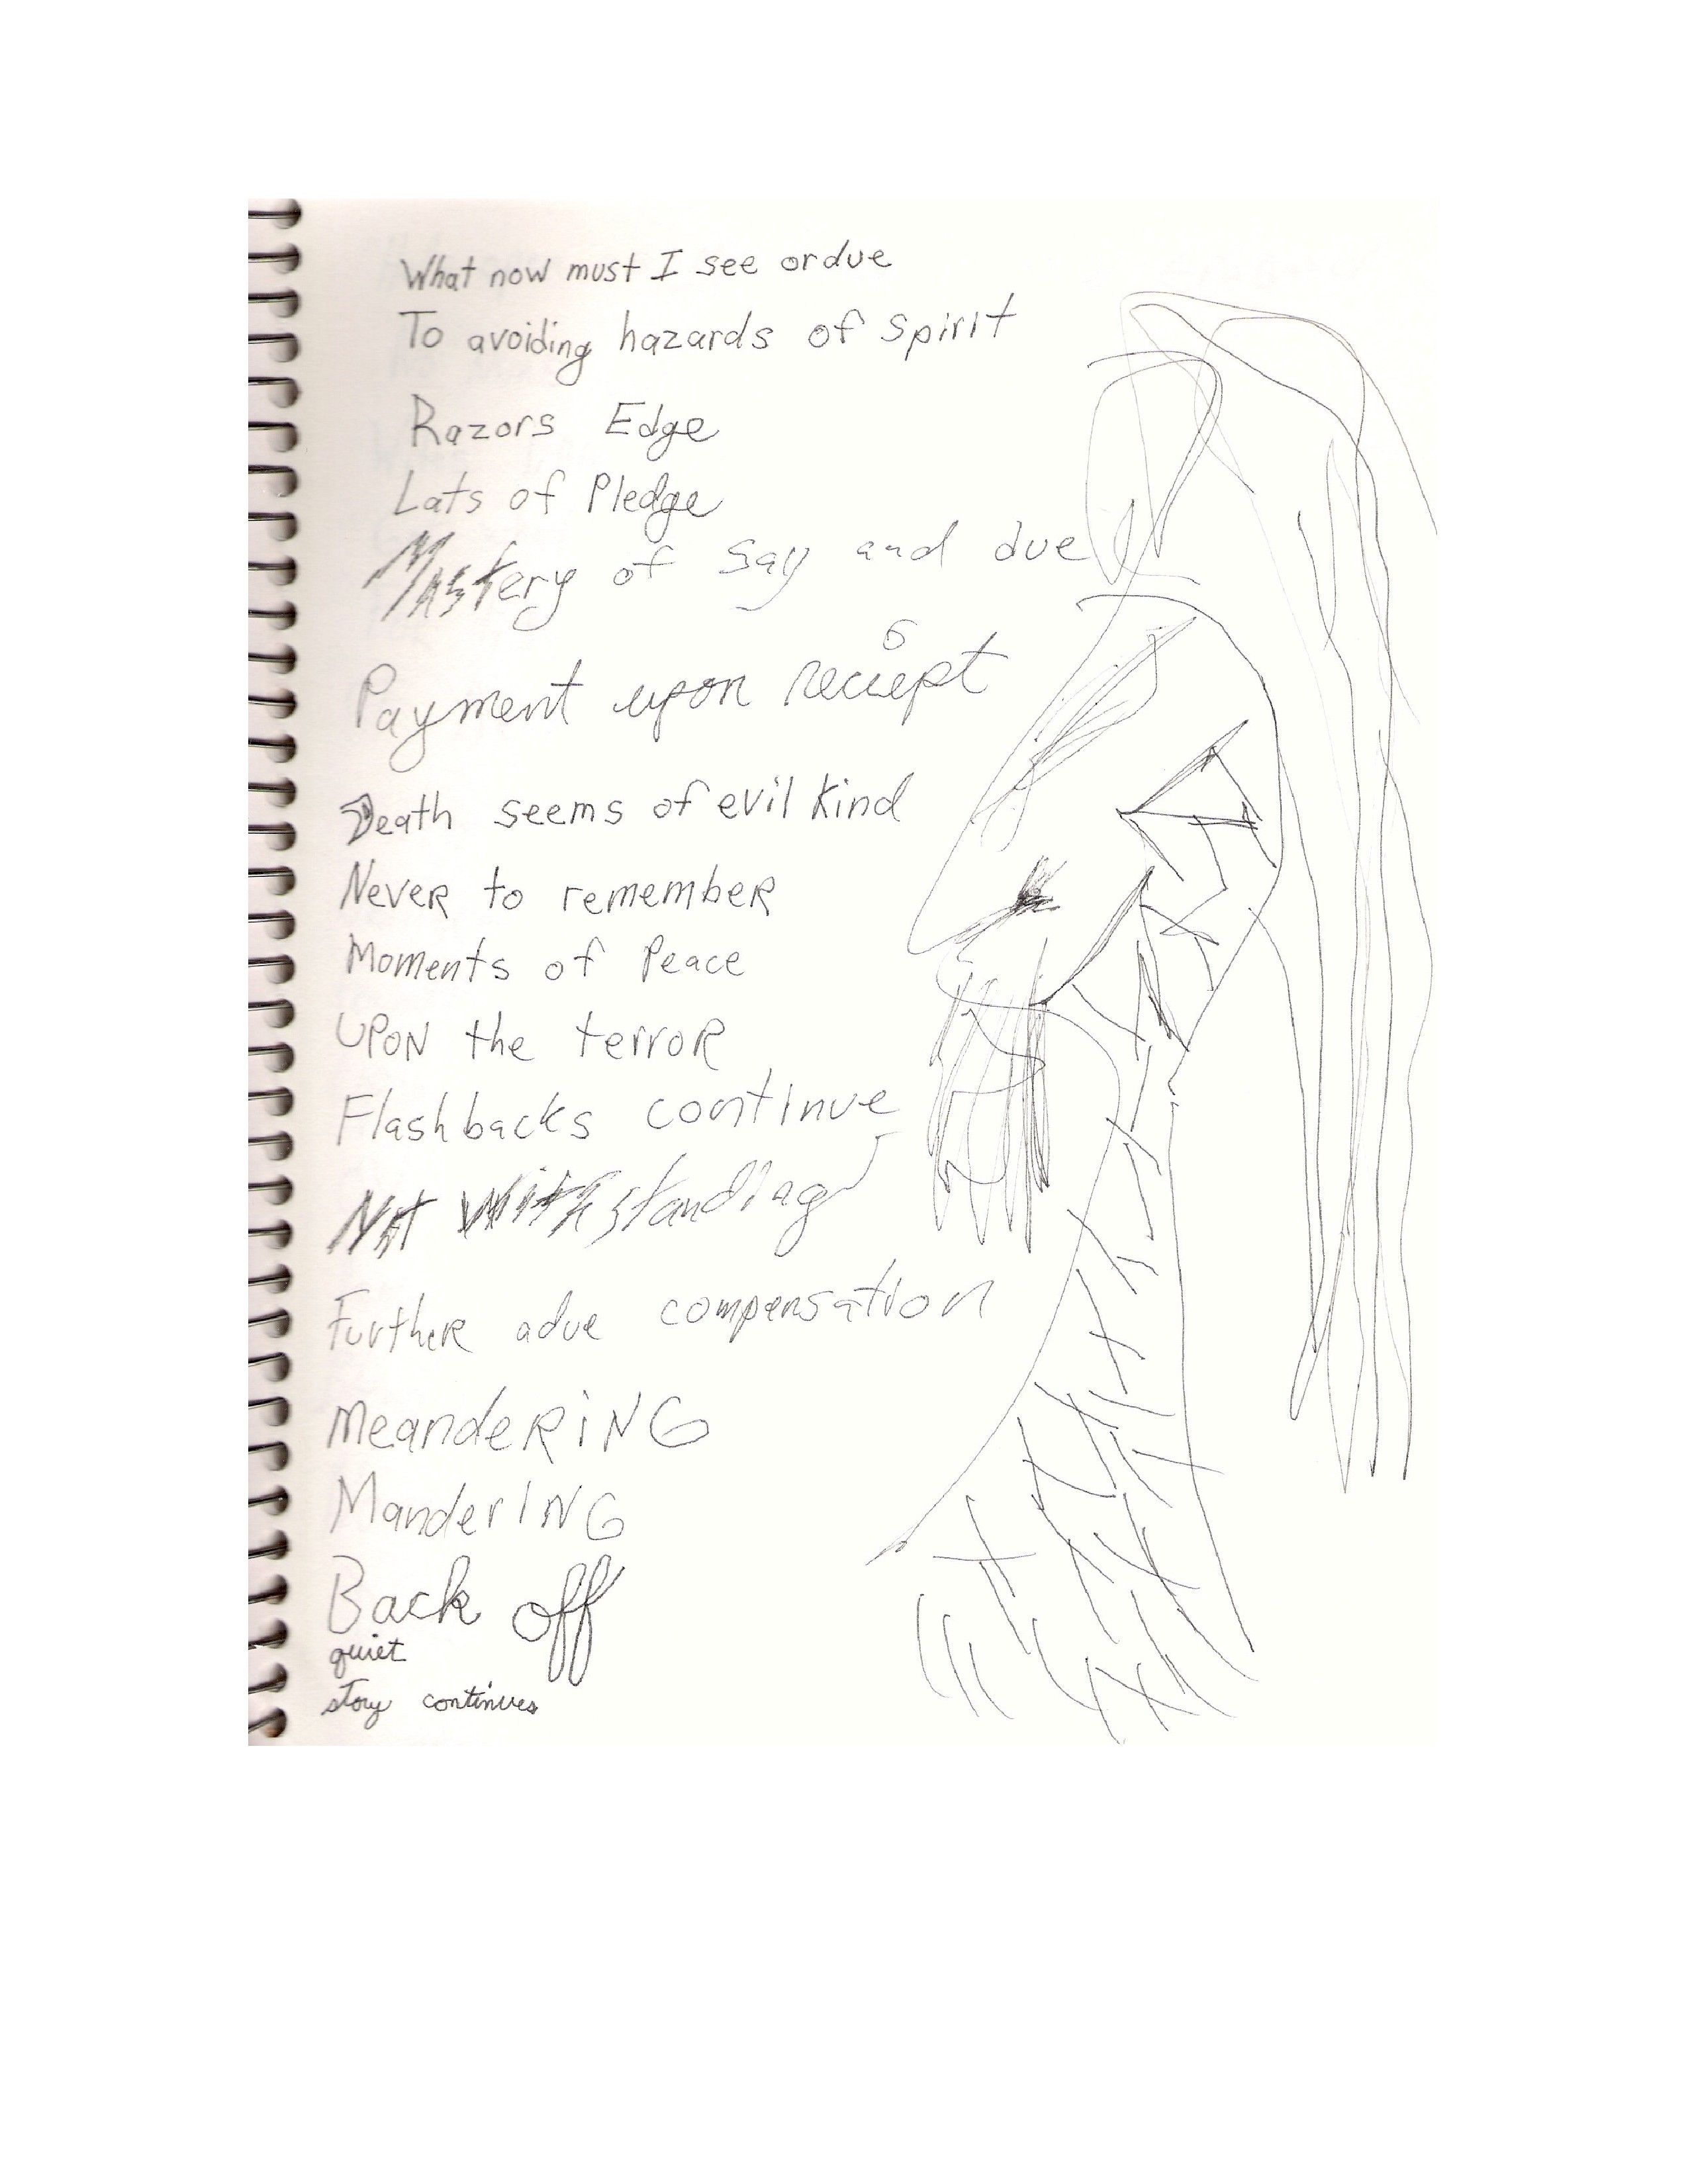 What now must I see or due
To avoiding hazards of spirit
Razors Edge
Lats of Pledge
Mastery of say and due
Payment upon reciept
Death seems of evil kind
Never to remember
Moments of Peace
UPON the terror
Flashbacks continue
Not withstanding
Further adue compensation
MeandeRiNG
ManderING
Back off
quiet
story continues